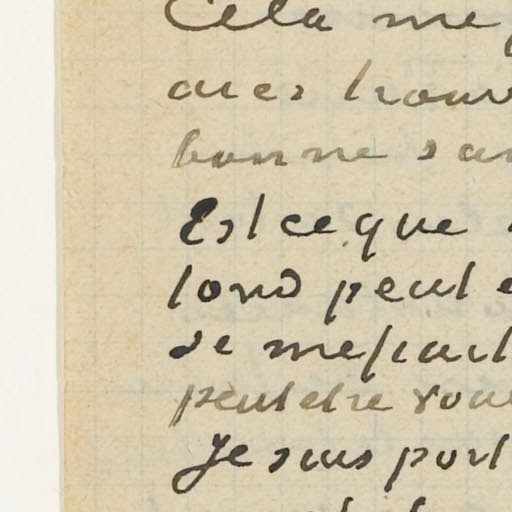 Cela me
avez trouv
bonne san
Est ce que
tond peut e
de me
peut etre vou
Je suis port